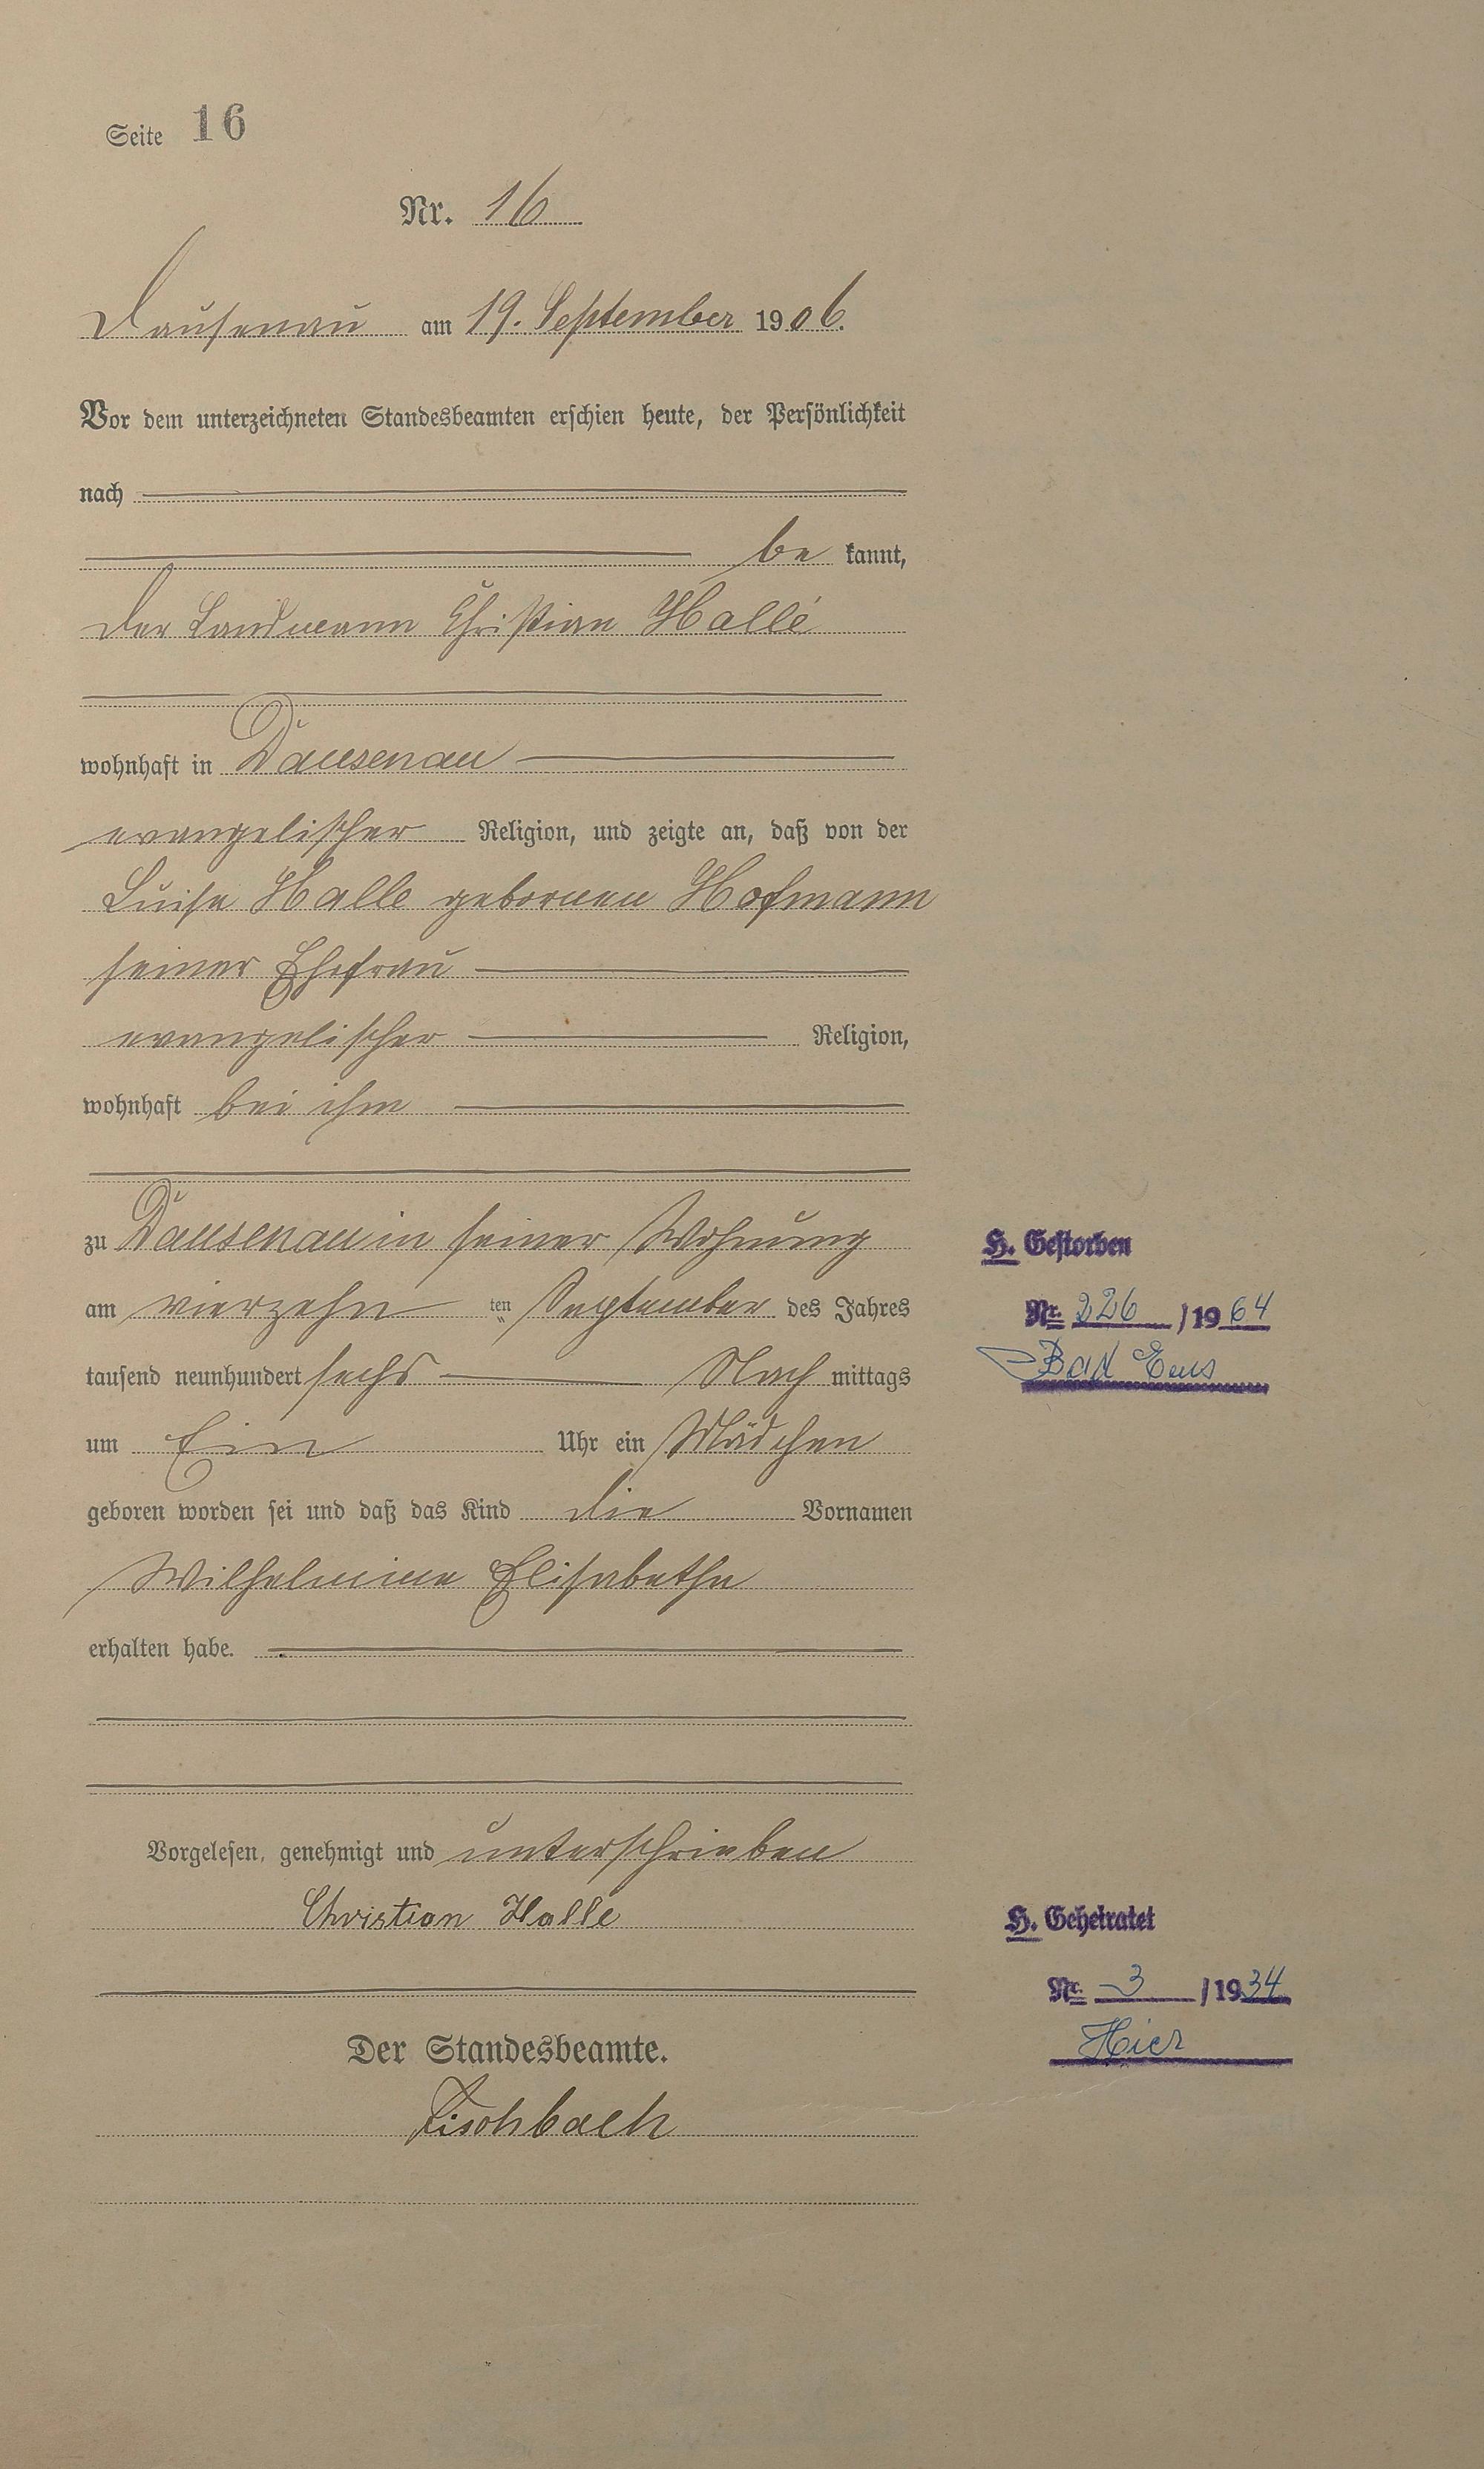 Seite 16
Nr. 16
Dausenau am 19. September 1906.
Vor dem unterzeichneten Standesbeamten erschien heute, der Persönlichkeit
nach
be kannt,
der Landmann Christian Hallé
wohnhaft in Dausenau
evangelischer Religion, und zeigte an, daß von der
Luise Halle gebornen Hofmann
seiner Ehefrau
evangelischer Religion,
wohnhaft bei ihm
zu Dausenau in seiner Wohnung
am vierzehn ten September des Jahres
tausend neunhundert sechs Nach mittags
um Ein Uhr ein Mädchen
geboren worden sei und daß das Kind die Vornamen
Wilhelmine Elisabethe
erhalten habe.
Vorgelesen, genehmigt und unterschrieben
Christian Halle
Der Standesbeamte.
Fischbach
H. Gestorben
Nr. 226 /1964
Bad Ems
H. Geheiratet
Nr. 3 /1934
Hier